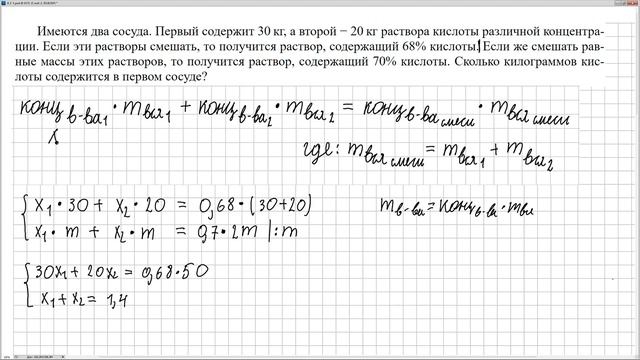 Имеются два сосуда. Первый содержит 30 кг, а второй − 20 кг раствора кислоты различной концентра-
ции. Если эти растворы смешать, то получится раствор, содержащий 68% кислоты. Если же смешать рав-
ные массы этих растворов, то получится раствор, содержащий 70% кислоты. Сколько килограммов кис-
лоты содержится в первом сосуде?
конц в-ва₁ · m вв₁ + конц в-ва₂ · m вв₂ = конц в-ва смеси · m вв смеси
где: m вв смеси = m вв₁ + m вв₂
x₁ · 30 + x₂ · 20 = 0,68 · (30+20)
x₁ · m + x₂ · m = 0,7 · 2m |: m
m в-ва = конц в-ва · m вв
30x₁ + 20x₂ = 0,68 · 50
x₁ + x₂ = 1,4